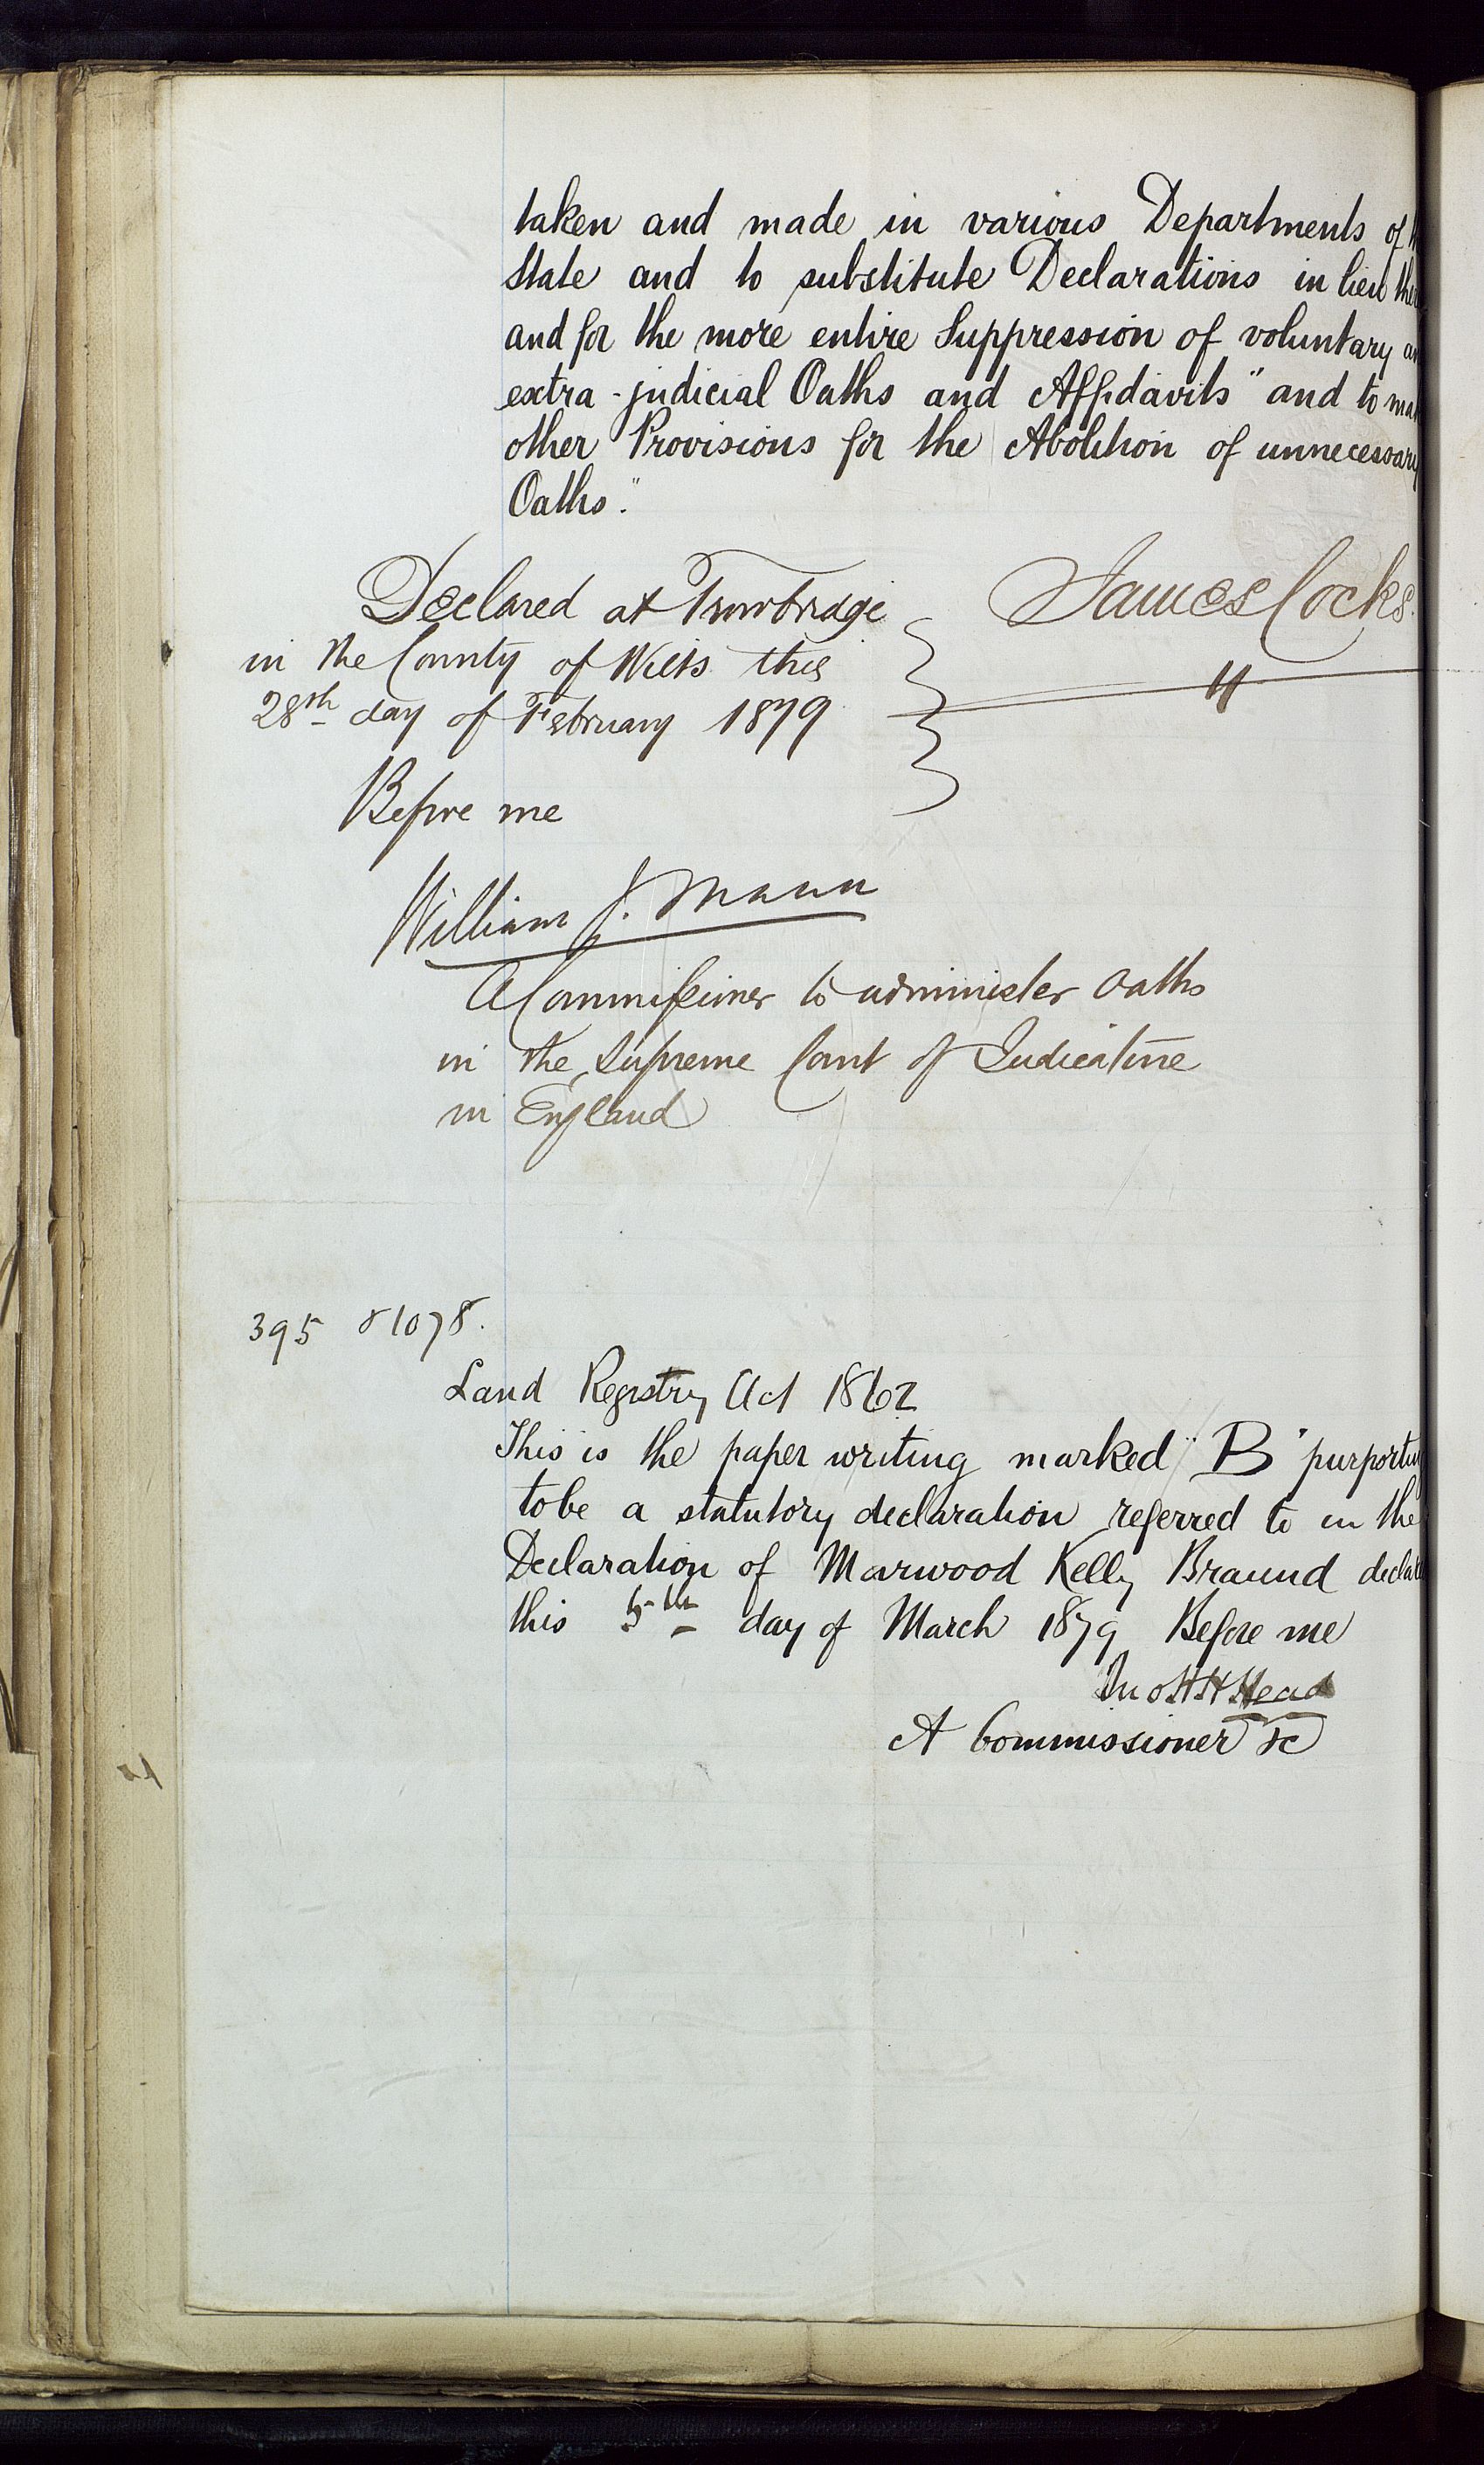 taken and made in various Departments of
State and to substitute Declarations in lieu
and for the more entire Suppression of voluntary
extra-judicial Oaths and Affidavits" and to
other Provisions for the Abolition of unnecessary
Oaths."
Declared at Trowbridge
in the County of Wilts this
28th day of February 1879
James Cocks.
Before me
William J. Mann
A Commissioner to administer oaths
in the Supreme Court of Judicature
in England
395 & 1078.
Land Registry Act 1862
This is the paper writing marked "B"
to be a statutory declaration referred to in the
Declaration of Marwood Kelly Braund
this 5th day of March 1879 Before me
Jno H H Head
A Commissioner &c